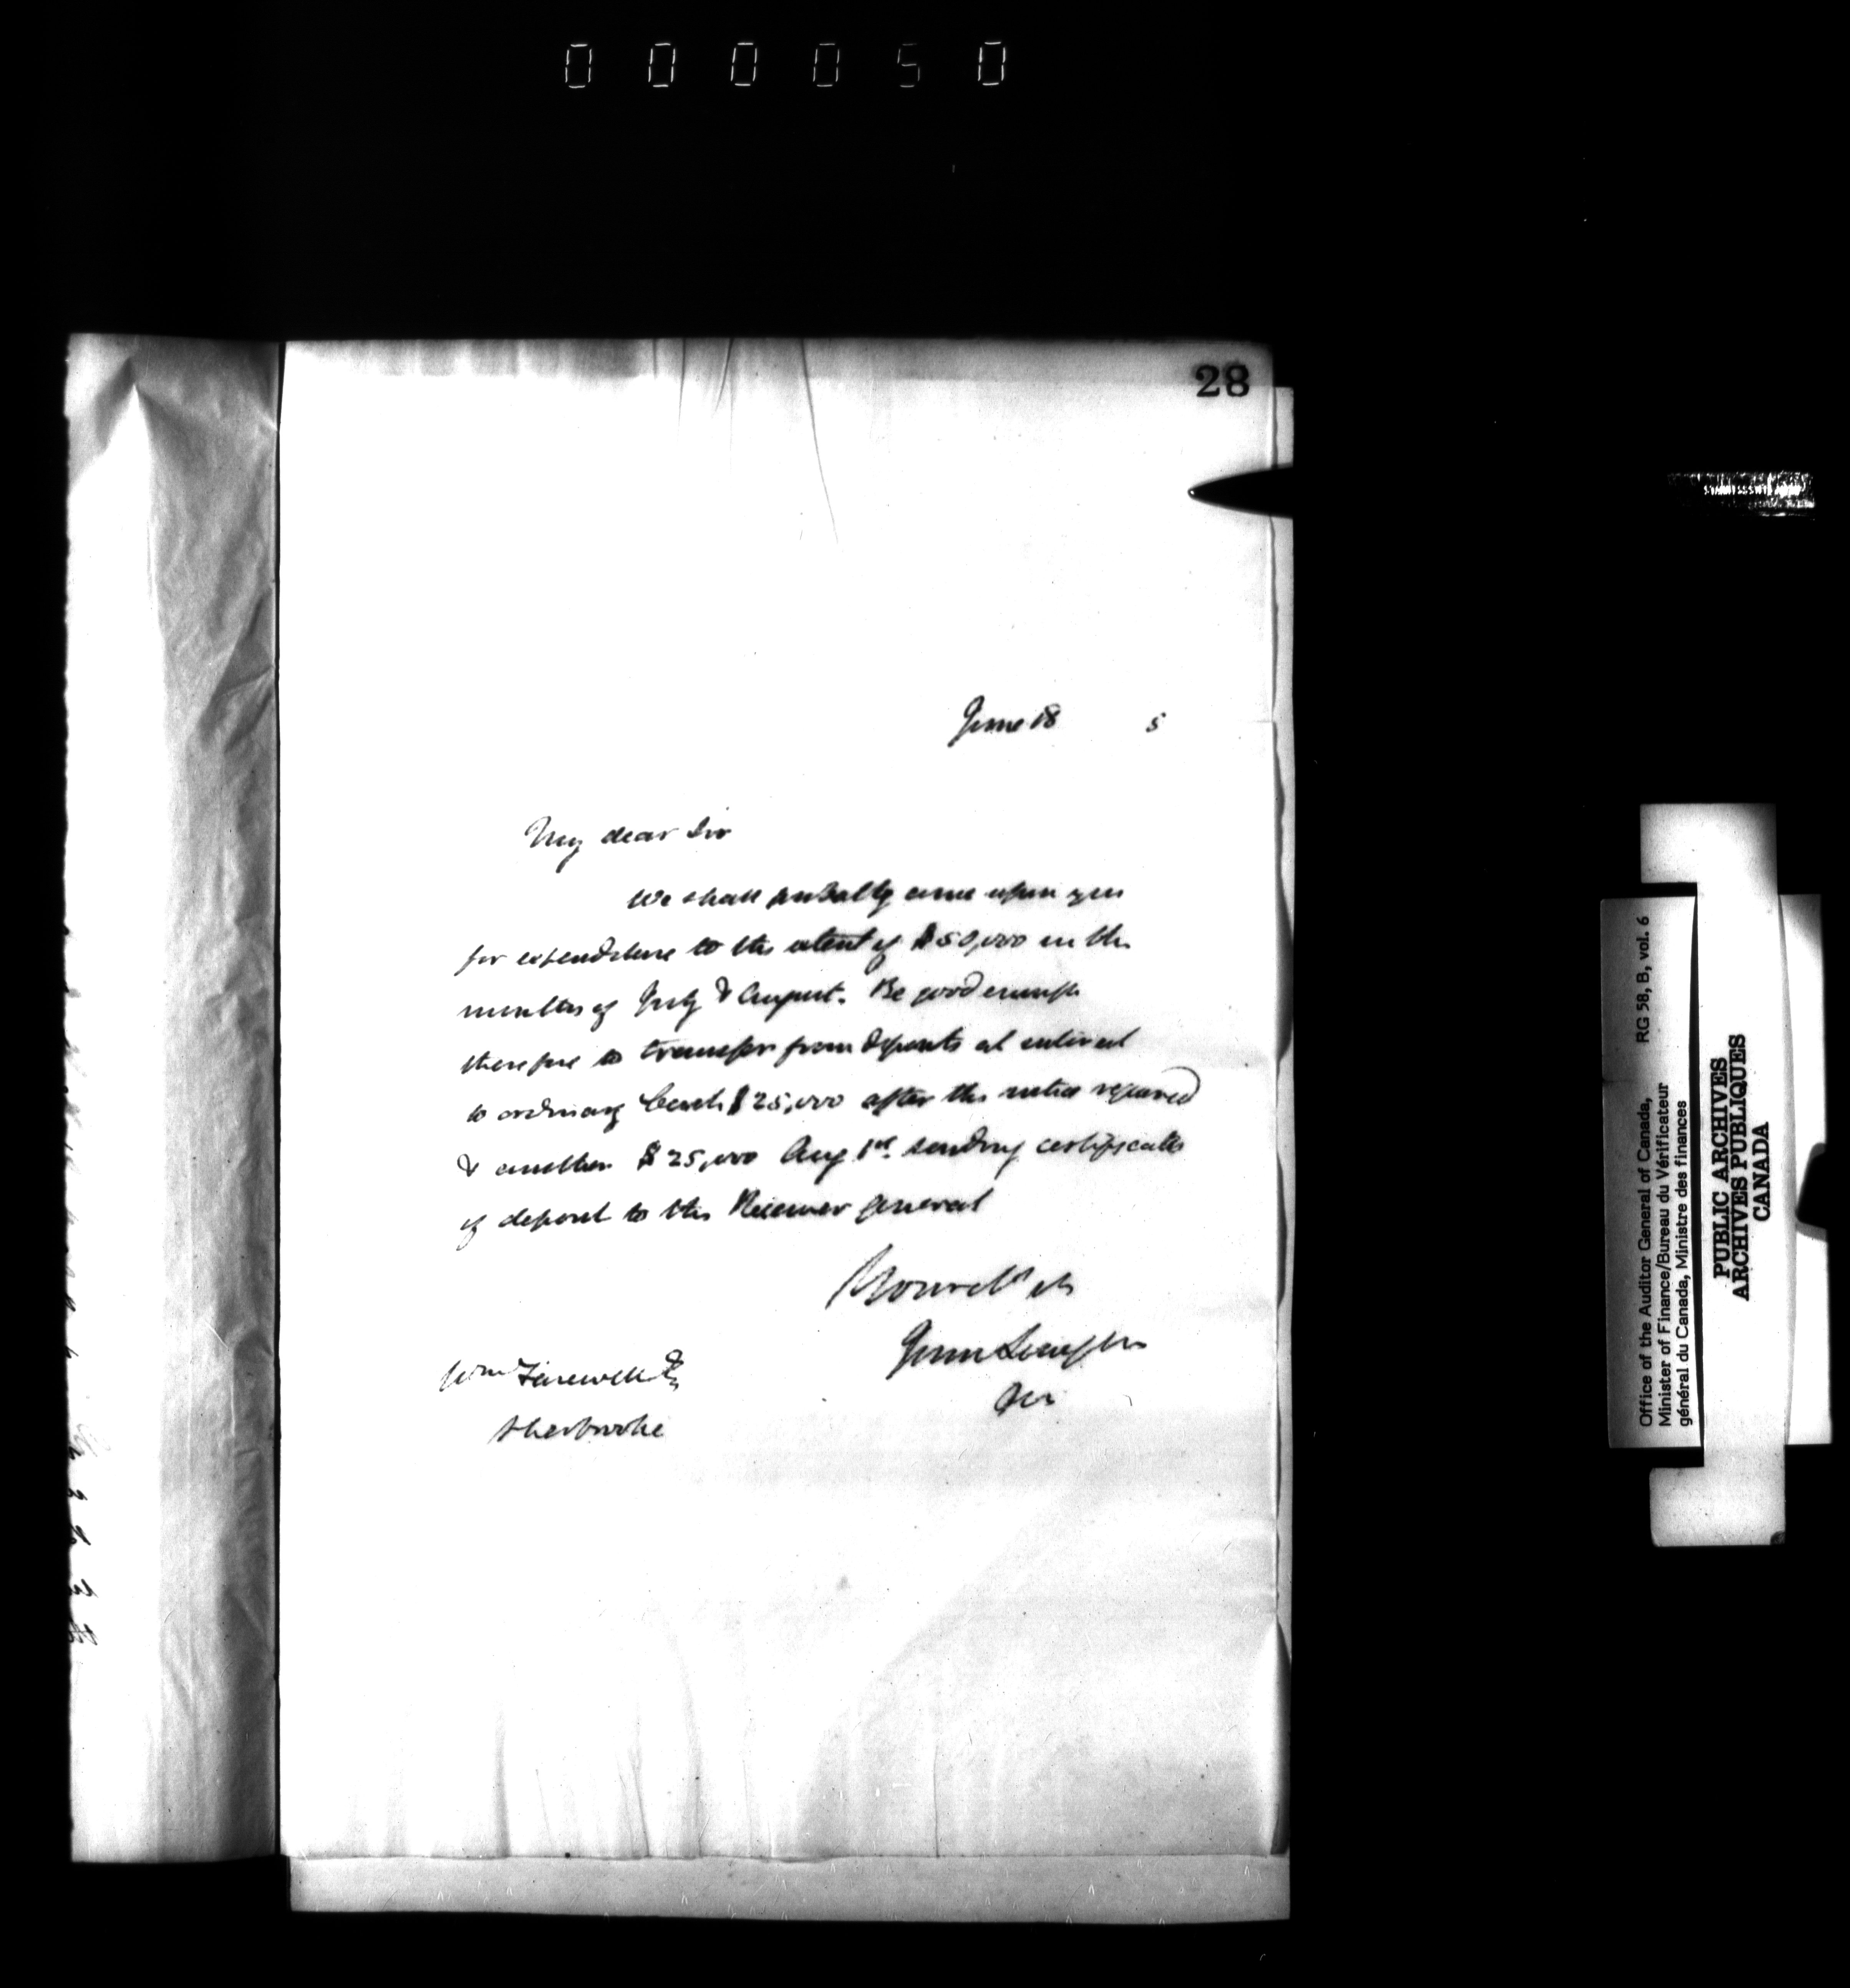 000050
28
June 18 5
My dear Sir
We shall probably come upon you
for expenditure to the extent of $50,000 in the
months of July & August. Be good enough
therefore to transfer from deposits at interest
to ordinary $25,000 after the notice required
& another $25,000 Aug 1st. sending certificates
of deposit to the Receiver General
Yours etc
John Langton
Wm Farwell
Sherbrooke
Office of the Auditor General of Canada, RG 58, B, vol. 6
Minister of Finance/Bureau du Vérificateur
général du Canada, Ministre des finances
PUBLIC ARCHIVES
ARCHIVES PUBLIQUES
CANADA